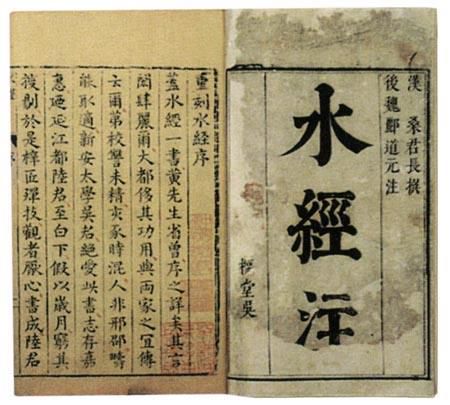 漢 桑君長撰
後魏酈道元注
水經注
堂吳
重刻水经序
蓋水經一書黄先生省曾序之詳矣其言
閎肆麗爾大都侈其功用與兩家之宜傳
云爾第校讐未精亥豕時混人非邢邵疇
能取適新安太學吳君絕愛此書志存嘉
惠迺延江都陸君至白下假以歲月窮其
搜剔於是梓匠殫技觀者厭心書成陸君